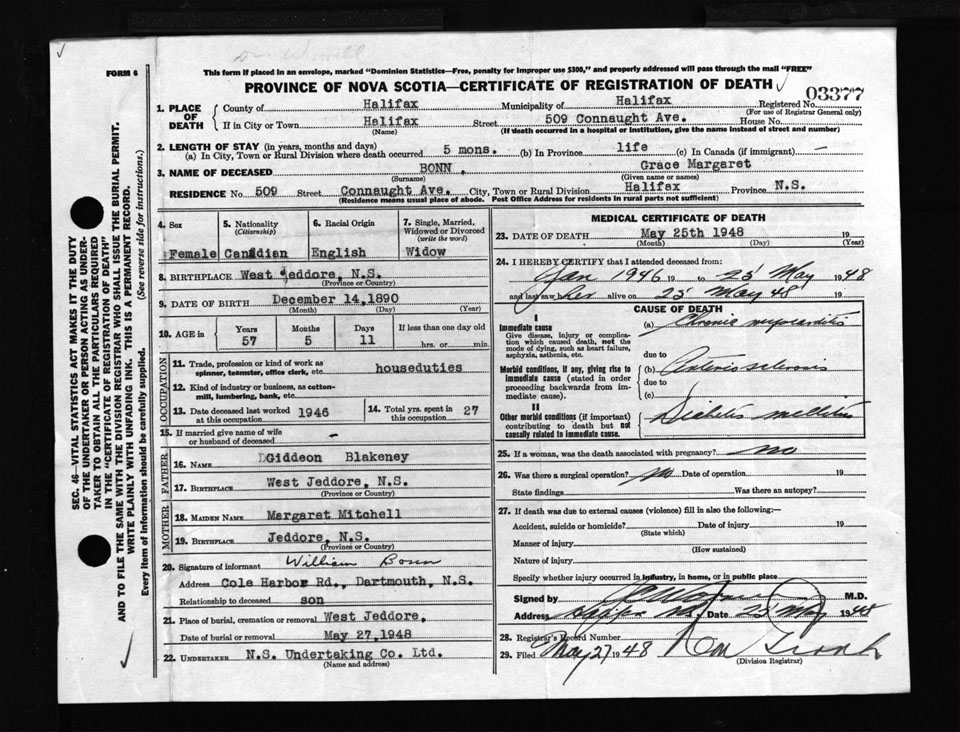 FORM 6
This form if placed in an envelope, marked "Dominion Statistics—Free, penalty for improper use $300," and properly addressed will pass through the mail "FREE"
PROVINCE OF NOVA SCOTIA—CERTIFICATE OF REGISTRATION OF DEATH
03377
1. PLACE OF DEATH
County of Halifax Municipality of Halifax Registered No.
(For use of Registrar General only)
If in City or Town Halifax Street 509 Connaught Ave. House No.
(Name) (If death occurred in a hospital or institution, give the name instead of street and number)
2. LENGTH OF STAY (in years, months and days)
(a) In City, Town or Rural Division where death occurred 5 mons. (b) In Province life (c) In Canada (if immigrant) —
3. NAME OF DECEASED BONN, Grace Margaret
(Surname) (Given name or names)
RESIDENCE No 509 Street Connaught Ave. City, Town or Rural Division Halifax Province N.S.
(Residence means usual place of abode. Post Office Address for residents in rural parts not sufficient)
4. Sex
Female
5. Nationality
(Citizenship)
Canadian
6. Racial Origin
English
7. Single, Married, Widowed or Divorced
(write the word)
Widow
8. BIRTHPLACE West Jeddore, N.S.
(Province or Country)
9. DATE OF BIRTH December 14,1890
(Month) (Day) (Year)
10. AGE in
Years Months Days If less than one day old
57 5 11 hrs. or min.
OCCUPATION
11. Trade, profession or kind of work as spinner, teamster, office clerk, etc. houseduties
12. Kind of industry or business, as cotton-mill, lumbering, bank, etc.
13. Date deceased last worked at this occupation 1946
14. Total yrs. spent in this occupation 27
15. If married give name of wife or husband of deceased -
FATHER
16. NAME Giddeon Blakeney
17. BIRTHPLACE West Jeddore, N.S.
(Province or Country)
MOTHER
18. MAIDEN NAME Margaret Mitchell
19. BIRTHPLACE Jeddore, N.S.
(Province or Country)
20. Signature of informant William Bonn
Address Cole Harbor Rd., Dartmouth, N.S.
Relationship to deceased son
21. Place of burial, cremation or removal West Jeddore,
Date of burial or removal May 27,1948
22. UNDERTAKER N.S. Undertaking Co. Ltd.
(Name and address)
MEDICAL CERTIFICATE OF DEATH
23. DATE OF DEATH May 25th 1948 19
(Month) (Day) (Year)
24. I HEREBY CERTIFY that I attended deceased from:
Jan 1946 19 to 25 May 1948
and last saw her alive on 25 May 48 19
CAUSE OF DEATH
I
Immediate cause
Give disease, injury or complication which caused death, not the mode of dying, such as heart failure, asphyxia, asthenia, etc.
(a) Chronic myocarditis
due to
Morbid conditions, if any, giving rise to immediate cause (stated in order proceeding backwards from immediate cause).
(b) Arteriosclerosis
due to
(c)
II
Other morbid conditions (if important) contributing to death but not causally related to immediate cause.
Diabetes mellitus
25. If a woman, was the death associated with pregnancy? no
26. Was there a surgical operation? no Date of operation 19
State findings Was there an autopsy?
27. If death was due to external causes (violence) fill in also the following:—
Accident, suicide or homicide? Date of injury 19
(State which)
Manner of injury
(How sustained)
Nature of injury
Specify whether injury occurred in industry, in home, or in public place
Signed by M.D.
Address Halifax N.S. Date 25 May 1948
28. Registrar's Record Number
29. Filed May 27 1948
(Division Registrar)
SEC. 46—VITAL STATISTICS ACT MAKES IT THE DUTY
OF THE UNDERTAKER OR PERSON ACTING AS UNDER-
TAKER TO OBTAIN ALL THE PARTICULARS REQUIRED
IN THE "CERTIFICATE OF REGISTRATION OF DEATH"
AND TO FILE THE SAME WITH THE DIVISION REGISTRAR WHO SHALL ISSUE THE BURIAL PERMIT.
WRITE PLAINLY WITH UNFADING INK. THIS IS A PERMANENT RECORD.
Every item of information should be carefully supplied. (See reverse side for instructions.)